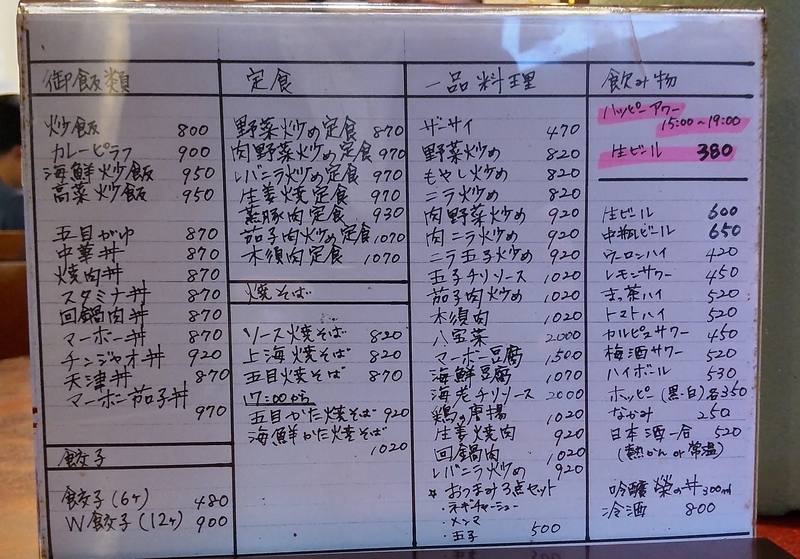 御飯類
炒飯 800
カレーピラフ 900
海鮮炒飯 950
高菜炒飯 950
五目がゆ 870
中華丼 870
焼肉丼 870
スタミナ丼 870
回鍋肉丼 870
マーボー丼 870
チンジャオ丼 920
天津丼 870
マーボー茄子丼
970
餃子
餃子(6ヶ) 480
W餃子(12ヶ) 900
定食
野菜炒め定食 870
肉野菜炒め定食 970
レバニラ炒め定食 970
生姜焼定食 970
蒸豚肉定食 930
茄子肉炒め定食 1070
木須肉定食 1070
焼そば
ソース焼そば 820
上海焼そば 820
五目焼そば 870
17:00から
五目かた焼そば 920
海鮮かた焼そば
1020
一品料理
ザーサイ 470
野菜炒め 820
もやし炒め 820
ニラ炒め 820
肉野菜炒め 920
肉ニラ炒め 920
ニラ玉子炒め 920
玉子チリソース 1020
茄子肉炒め 1020
木須肉 1020
八宝菜 2000
マーボー豆腐 1,500
海鮮豆腐 1070
海老チリソース 2000
鶏の唐揚 1020
生姜焼肉 920
回鍋肉 1020
レバニラ炒め 920
☆おつまみ3点セット
・ネギチャーシュー
・メンマ
・玉子 500
飲み物
ハッピーアワー
15:00~19:00
生ビール 380
生ビール 600
中瓶ビール 650
ウーロンハイ 420
レモンサワー 450
まっ茶ハイ 520
トマトハイ 520
カルピスサワー 450
梅酒サワー 520
ハイボール 530
ホッピー(黒・白)各350
なかみ 250
日本酒一合 520
(熱かん or 常温)
吟醸 榮の井 300ml
冷酒 800